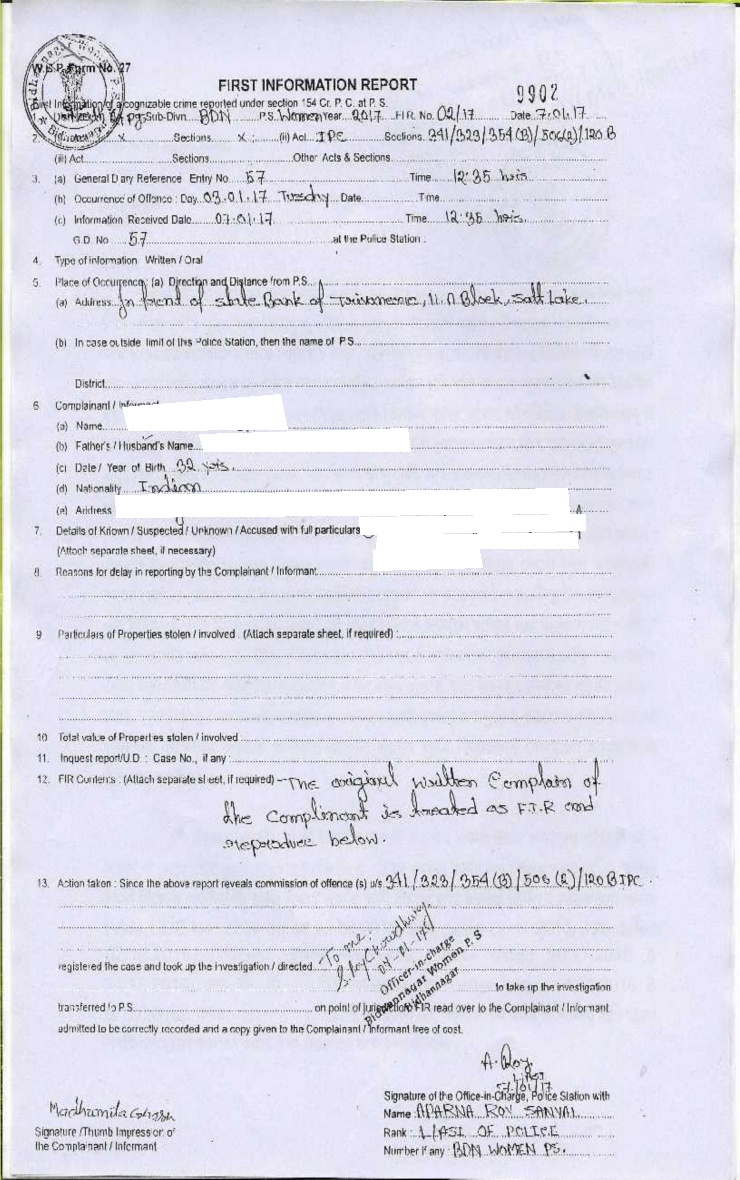 W.B.P. Form No. 27
FIRST INFORMATION REPORT
9902
First Information of a cognizable crime reported under section 154 Cr. P. C. at P. S.
Sub-Divn. BDN P.S. Women Year 2017 F.I.R. No. 02/17 Date 7.01.17
2. X Sections X (ii) Act IPC Sections 341/323/354(B)/506(2)/120B
(iii) Act Sections Other Acts & Sections
3. (a) General Diary Reference Entry No 57 Time 12:35 hrs
(b) Occurrence of Offence : Day 03.01.17 Tuesday Date Time
(c) Information Received Date 07.01.17 Time 12:35 hrs.
G.D. No 57 at the Police Station :
4. Type of information Written / Oral
5. Place of Occurrence: (a) Direction and Distance from P.S.
(a) Address In front of State Bank of Block, Salt Lake.
(b) In case outside limit of this Police Station, then the name of P.S.
District
6 Complainant /
(a) Name
(b) Father's / Husband's Name
(c) Date / Year of Birth 32 yrs.
(d) Nationality Indian
(e) Address
7. Details of Known / Suspected / Unknown / Accused with full particulars
(Attach separate sheet, if necessary)
8. Reasons for delay in reporting by the Complainant / Informant
9 Particulars of Properties stolen / involved : (Attach separate sheet, if required) :
10 Total value of Properties stolen / involved :
11. Inquest report/U.D. : Case No., if any :
12. FIR Contents : (Attach separate sheet, if required) - The original written Complain of
the Complinant is treated as F.I.R and
reproduce below.
13. Action taken : Since the above report reveals commission of offence (s) u/s 341/323/354(B)/506(2)/120B IPC.
To me.
Officer-in-charge
Bidhannagar Women P. S
Bidhannagar
registered the case and took up the investigation / directed
to take up the investigation
transferred to P.S. on point of jurisdiction FIR read over to the Complainant / Informant
admitted to be correctly recorded and a copy given to the Complainant / Informant free of cost.
A. Roy
7/01/17
Signature of the Office-in-Charge, Police Station with
Name APARNA ROY SANYAL
Rank : L/ASI OF POLICE
Number if any : BDN WOMEN PS.
Signature /Thumb Impression of
the Complainant / Informant